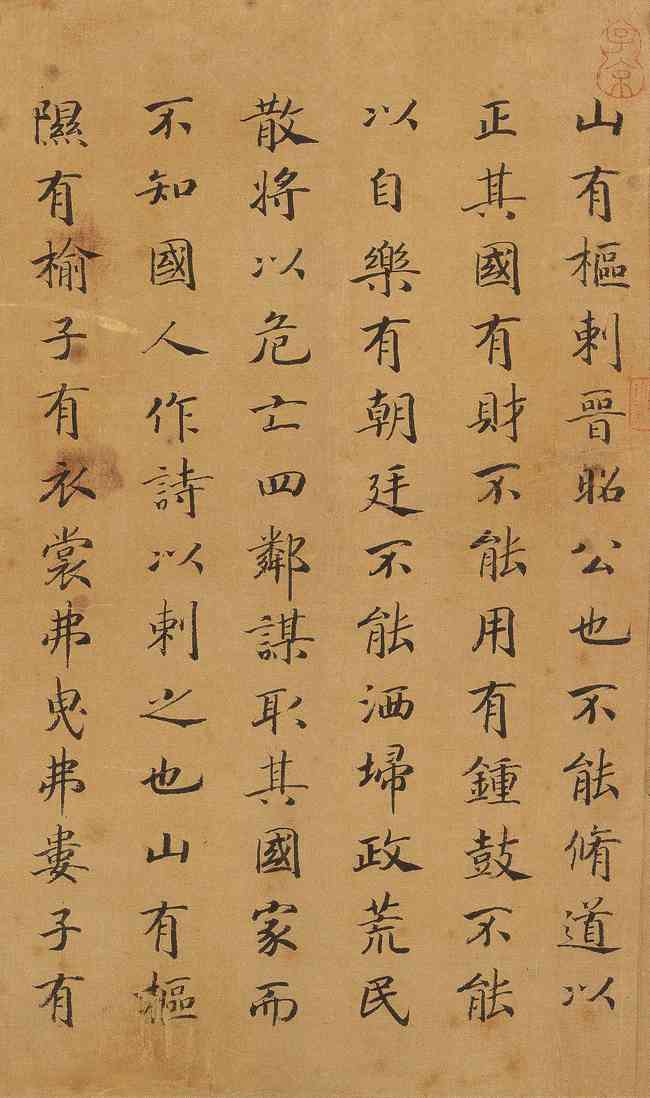 子京
山有樞刺晉昭公也不能脩道以
正其國有財不能用有鍾鼓不能
以自樂有朝廷不能洒埽政荒民
散將以危亡四鄰謀取其國家而
不知國人作詩以刺之也山有樞
隰有榆子有衣裳弗曳弗婁子有